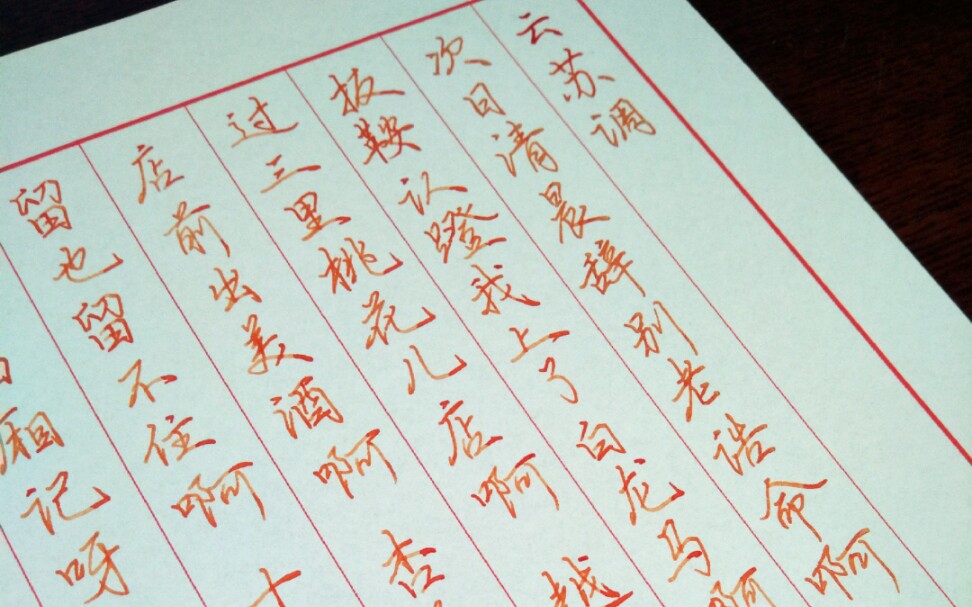 云苏调
次日清晨辞别老诰命啊
扳鞍认蹬我上了白龙马啊
过三里桃花儿店啊 越
店前出美酒啊 杏
留也留不住啊
厢记呀